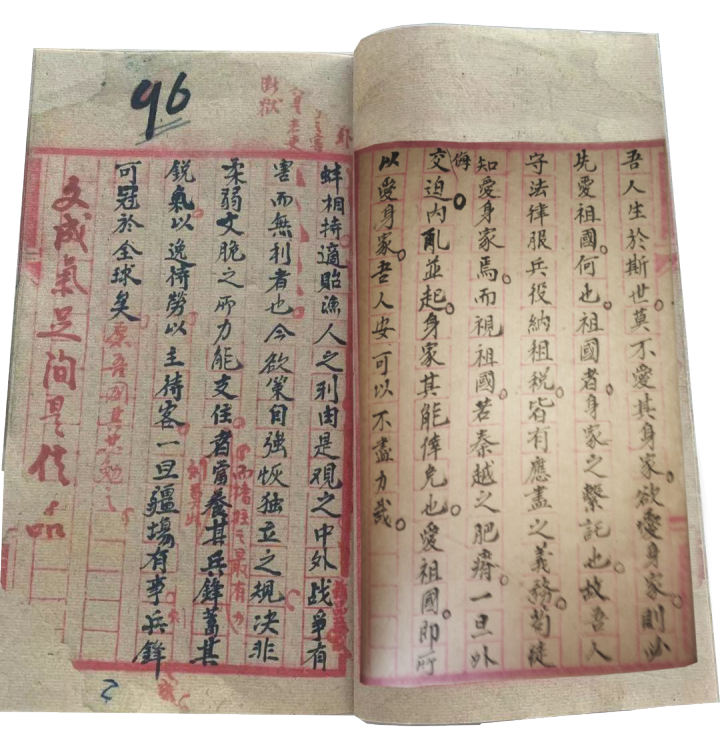 吾人生於斯世莫不愛其身家欲愛身家則必
先愛祖國何也祖國者身家之繫託也故吾人
守法律服兵役納租稅皆有應盡之義務苟徒
知愛身家焉而視祖國若秦越之肥瘠一旦外
侮
交迫內亂並起身家其能倖免也愛祖國即所
以愛身家吾人安可以不盡力哉
96
斷獄
蚌相持適貽漁人之利由是觀之中外战爭有
害而無利者也今欲策自強恢独立之規決非
柔弱文脆之所力能支住者當養其兵鋒蓄其
而撐柱之最有力
銳氣以逸待勞以主持客一旦疆場有事兵鋒
可冠於全球矣
願吾國其共勉之
文成氣足洵是佳品
2